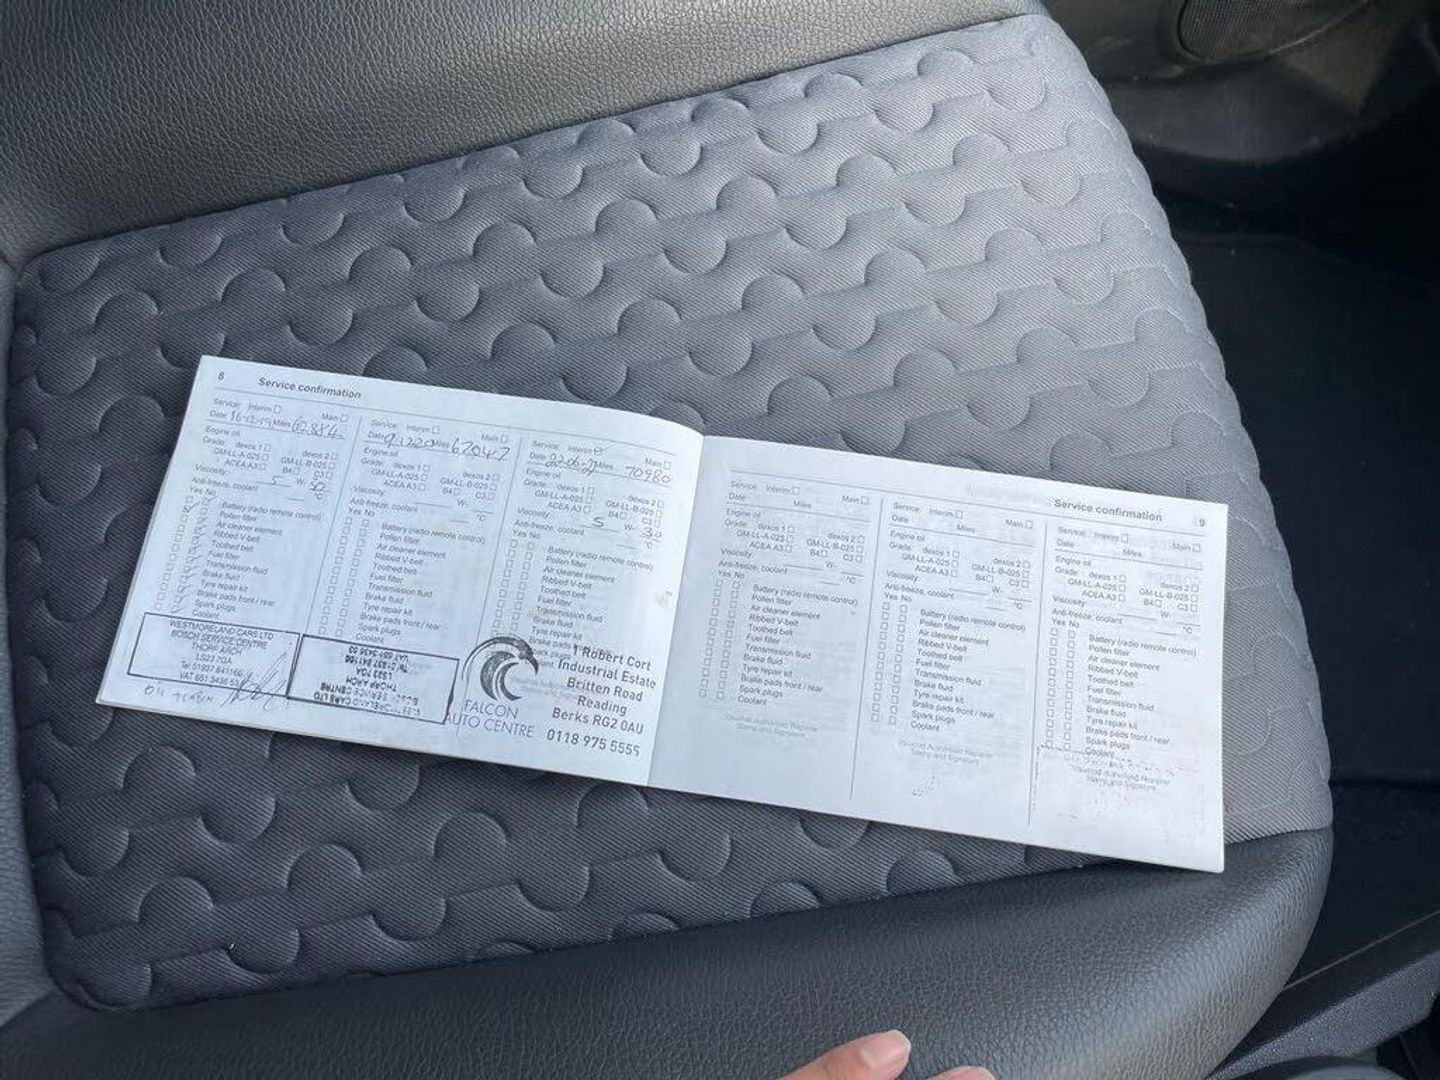 8
Service confirmation
Service: Interim Main
Date 16-12-19 Miles 62884
Engine oil
Grade: dexos 1 dexos 2
GM-LL-A-025 GM-LL-B-025
ACEA A3 B4 C3
Viscosity: 5 W-
Anti-freeze, coolant °C
Yes No
Battery (radio remote control)
Pollen filter
Air cleaner element
Ribbed V-belt
Toothed belt
Fuel filter
Transmission fluid
Brake fluid
Tyre repair kit
Brake pads front / rear
Spark plugs
Coolant
WESTMORELAND CARS LTD
BOSCH SERVICE CENTRE
THORP ARCH
LS23 7GA
Tel 01937 841166
VAT 651 3436 53
OIL + CABIN
Service: Interim Main
Date Miles 67047
Engine oil
Grade: dexos 1 dexos 2
GM-LL-A-025 GM-LL-B-025
ACEA A3 B4 C3
Viscosity: W-
Anti-freeze, coolant °C
Yes No
Battery (radio remote control)
Pollen filter
Air cleaner element
Ribbed V-belt
Toothed belt
Fuel filter
Transmission fluid
Brake fluid
Tyre repair kit
Brake pads front / rear
Spark plugs
Coolant
CARS LTD
SERVICE CENTRE
THORP ARCH
LS23 7GA
Service: Interim Main
Date 22-06-22 Miles 70980
Engine oil
Grade: dexos 1 dexos 2
GM-LL-A-025 GM-LL-B-025
ACEA A3 B4 C3
Viscosity: 5 W- 30
Anti-freeze, coolant °C
Yes No
Battery (radio remote control)
Pollen filter
Air cleaner element
Ribbed V-belt
Toothed belt
Fuel filter
Transmission fluid
Brake fluid
Tyre repair kit
Brake pads
Spark plugs
FALCON
AUTO CENTRE
1 Robert Cort
Industrial Estate
Britten Road
Reading
Berks RG2 0AU
0118 975 5555
Service confirmation 9
Service: Interim Main
Date Miles
Engine oil
Grade: dexos 1 dexos 2
GM-LL-A-025 GM-LL-B-025
ACEA A3 B4 C3
Viscosity: W-
Anti-freeze, coolant °C
Yes No
Battery (radio remote control)
Pollen filter
Air cleaner element
Ribbed V-belt
Toothed belt
Fuel filter
Transmission fluid
Brake fluid
Tyre repair kit
Brake pads front / rear
Spark plugs
Coolant
Vauxhall Authorised Repairer
Stamp and Signature
Service: Interim Main
Date Miles
Engine oil
Grade: dexos 1 dexos 2
GM-LL-A-025 GM-LL-B-025
ACEA A3 B4 C3
Viscosity: W-
Anti-freeze, coolant °C
Yes No
Battery (radio remote control)
Pollen filter
Air cleaner element
Ribbed V-belt
Toothed belt
Fuel filter
Transmission fluid
Brake fluid
Tyre repair kit
Brake pads front / rear
Spark plugs
Coolant
Vauxhall Authorised Repairer
Stamp and Signature
Service: Interim Main
Date Miles
Engine oil
Grade: dexos 1 dexos 2
GM-LL-A-025 GM-LL-B-025
ACEA A3 B4 C3
Viscosity: W-
Anti-freeze, coolant °C
Yes No
Battery (radio remote control)
Pollen filter
Air cleaner element
Ribbed V-belt
Toothed belt
Fuel filter
Transmission fluid
Brake fluid
Tyre repair kit
Brake pads front / rear
Spark plugs
Coolant
Vauxhall Authorised Repairer
Stamp and Signature